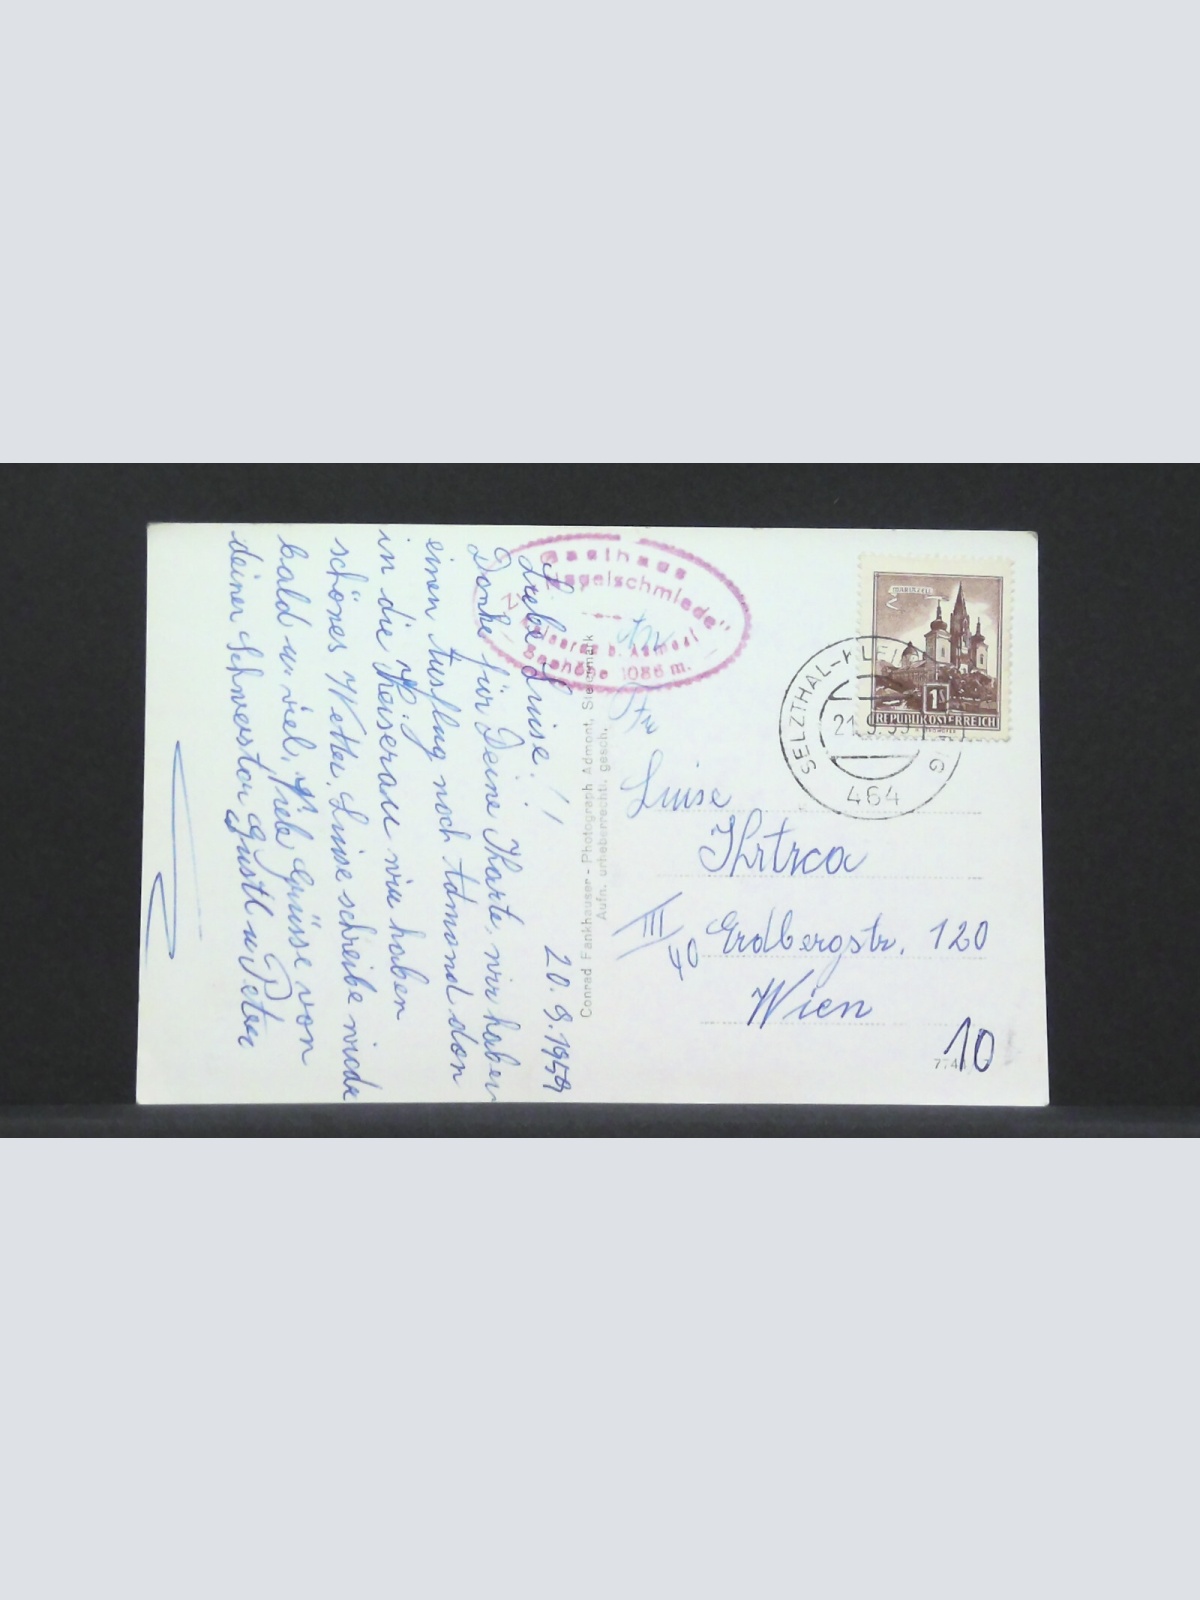 20.9.1959
Liebe Luise!!
Danke für Deine Karte, wir haben
einen Ausflug nach Admond don
in die Keiserau wir haben
schönes Wetter, Luise schreibe wieder
bald u. viel, Viele Grüsse von
deiner Schwester Gustl u Peter
Gasthaus
"Nagelschmiede"
Kaiserau b. Admont
Seehöhe 1086 m.
Conrad Fankhauser - Photograph Admont, Steiermark
Aufn. urheberrechtl. gesch.
MARIAZELL
1S
REPUBLIK ÖSTERREICH
SELZTHAL-KLEI
21.9.59
464
An
Frau
Luise
III/40
Erdbergstr. 120
Wien
10